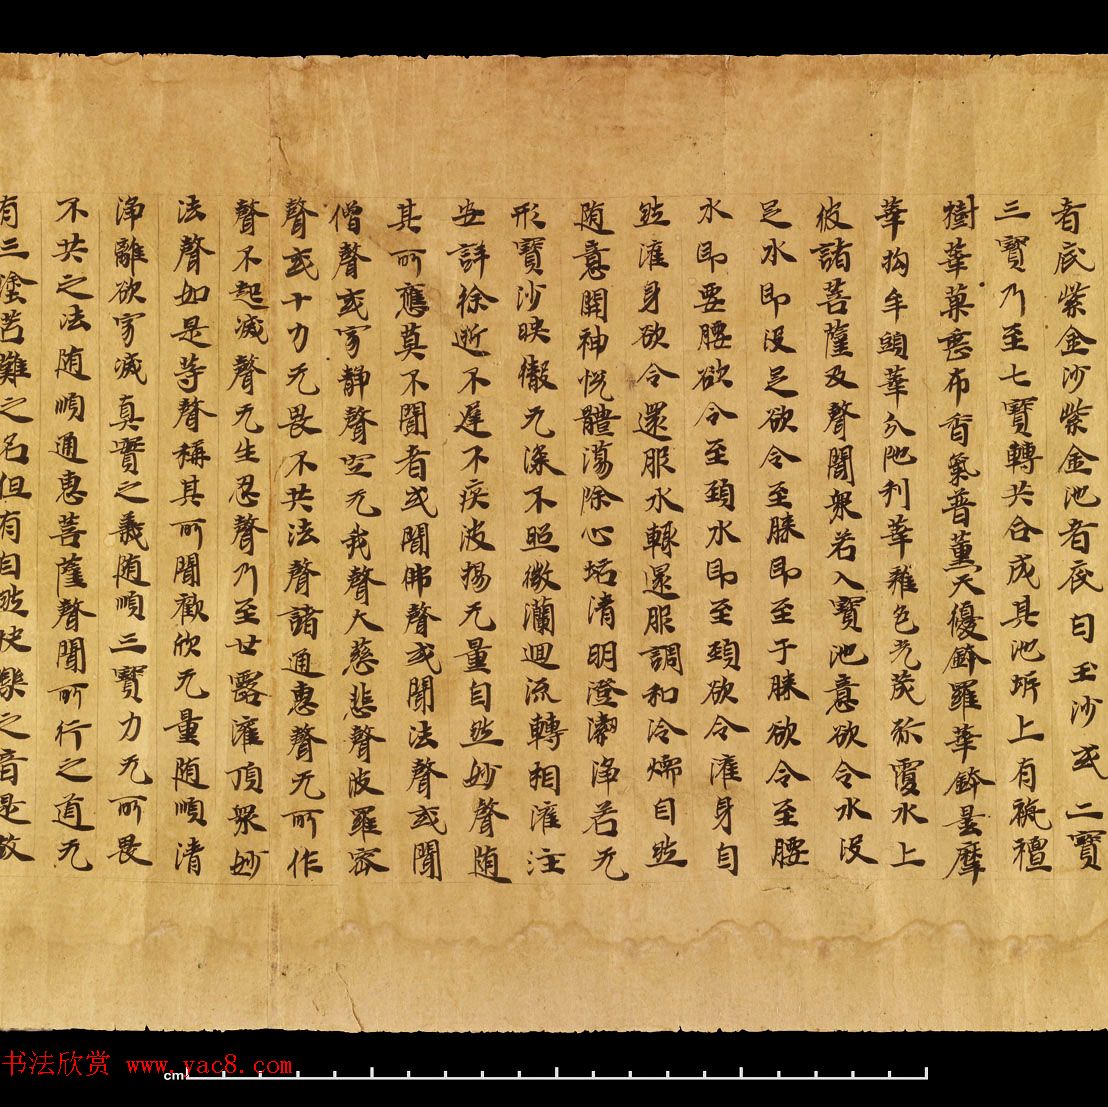 者底紫金沙紫金池者底白玉沙或二寶
三寶乃至七寶轉共合成其池坼上有栴檀
樹華菓悉布香氣普薰天優鉢羅華鉢曇摩
華拘牟頭華分陁利華雜色光茂弥覆水上
彼諸菩薩及聲聞衆若入寶池意欲令水没
足水即没足欲令至膝即至于膝欲令至腰
水即至腰欲令至頚水即至頚欲令灌身自
然灌身欲令還服水輙還服調和泠煗自然
随意開神悅體蕩除心垢清明澄潔淨若无
形寶沙映徹无深不照微瀾迴流轉相灌注
安詳徐逝不遅不疾波揚无量自然妙聲随
其所應莫不聞者或聞佛聲或聞法聲或聞
僧聲或寂静聲空无我聲大慈悲聲波羅蜜
聲或十力无畏不共法聲諸通惠聲无所作
聲不起滅聲无生忍聲乃至甘露灌頂衆妙
法聲如是等聲稱其所聞歡欣无量随順清
淨離欲寂滅真實之義随順三寶力无所畏
不共之法随順通惠菩薩聲聞所行之道无
有三塗苦難之名但有自然快樂之音是故
书法欣赏 www.yac8.com
cm